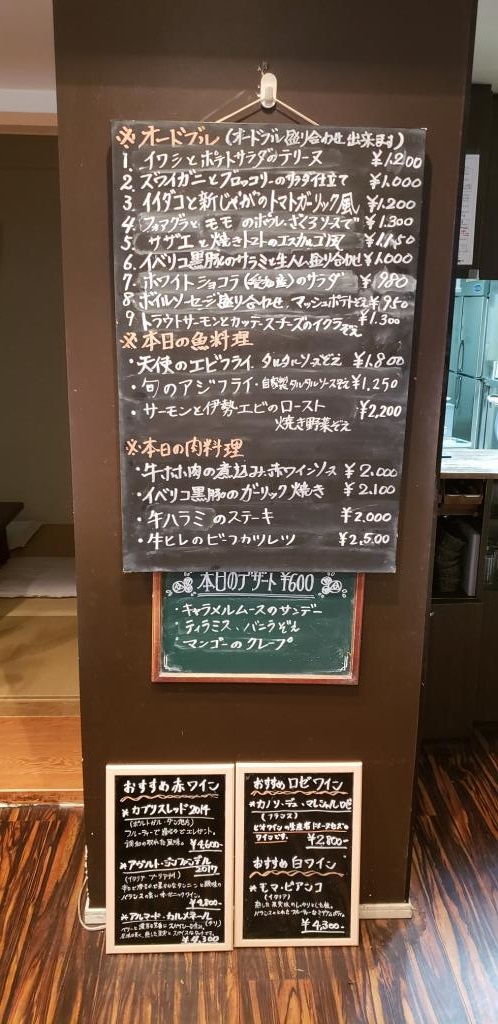 ※オードブル(オードブル盛り合わせ出来ます)
1. イワシとポテトサラダのテリーヌ ¥1.200
2. ズワイガニとブロッコリーのサラダ仕立て ¥1.000
3. イイダコと新じゃがのトマトガーリック風 ¥1.200
4. フォアグラとモモのポワレ.ざくろソースで ¥1.300
5. サザエと焼きトマトのエスカルゴ風 ¥1.150
6. イベリコ黒豚のサラミと生ハム盛り合わせ ¥1.000
7. ホワイトショコラ(愛知産)のサラダ ¥980
8. ボイルソーセージ盛り合わせ マッシュポテトぞえ ¥950
9. トラウトサーモンとカッテージチーズのイクラぞえ ¥1.300
※本日の魚料理
・天使のエビフライ タルタルソースぞえ ¥1.800
・旬のアジフライ・自家製タルタルソースぞえ ¥1.250
・サーモンと伊勢エビのロースト ¥2,200
焼き野菜ぞえ
※本日の肉料理
・牛ホホ肉の煮込み.赤ワインソース ¥2.000
・イベリコ黒豚のガーリック焼き ¥2.100
・牛ハラミのステーキ ¥2,000
・牛ヒレのビーフカツレツ ¥2,500
本日のデザート ¥600
・キャラメルムースのサンデー
・ティラミス、バニラぞえ
・マンゴーのクレープ
おすすめ赤ワイン
※カブリスレッド2014
(ポルトガル・ダン地方)
フルーティーで
調和の取れた風味。
¥4600-
2017
¥4,800-
※アルマード・カルメネール
(チリ)
¥4,300
おすすめロゼワイン
(フランス)
ワインです。 ¥2,800-
おすすめ白ワイン
※モマ・ビアンコ
(イタリア)
¥4,300-